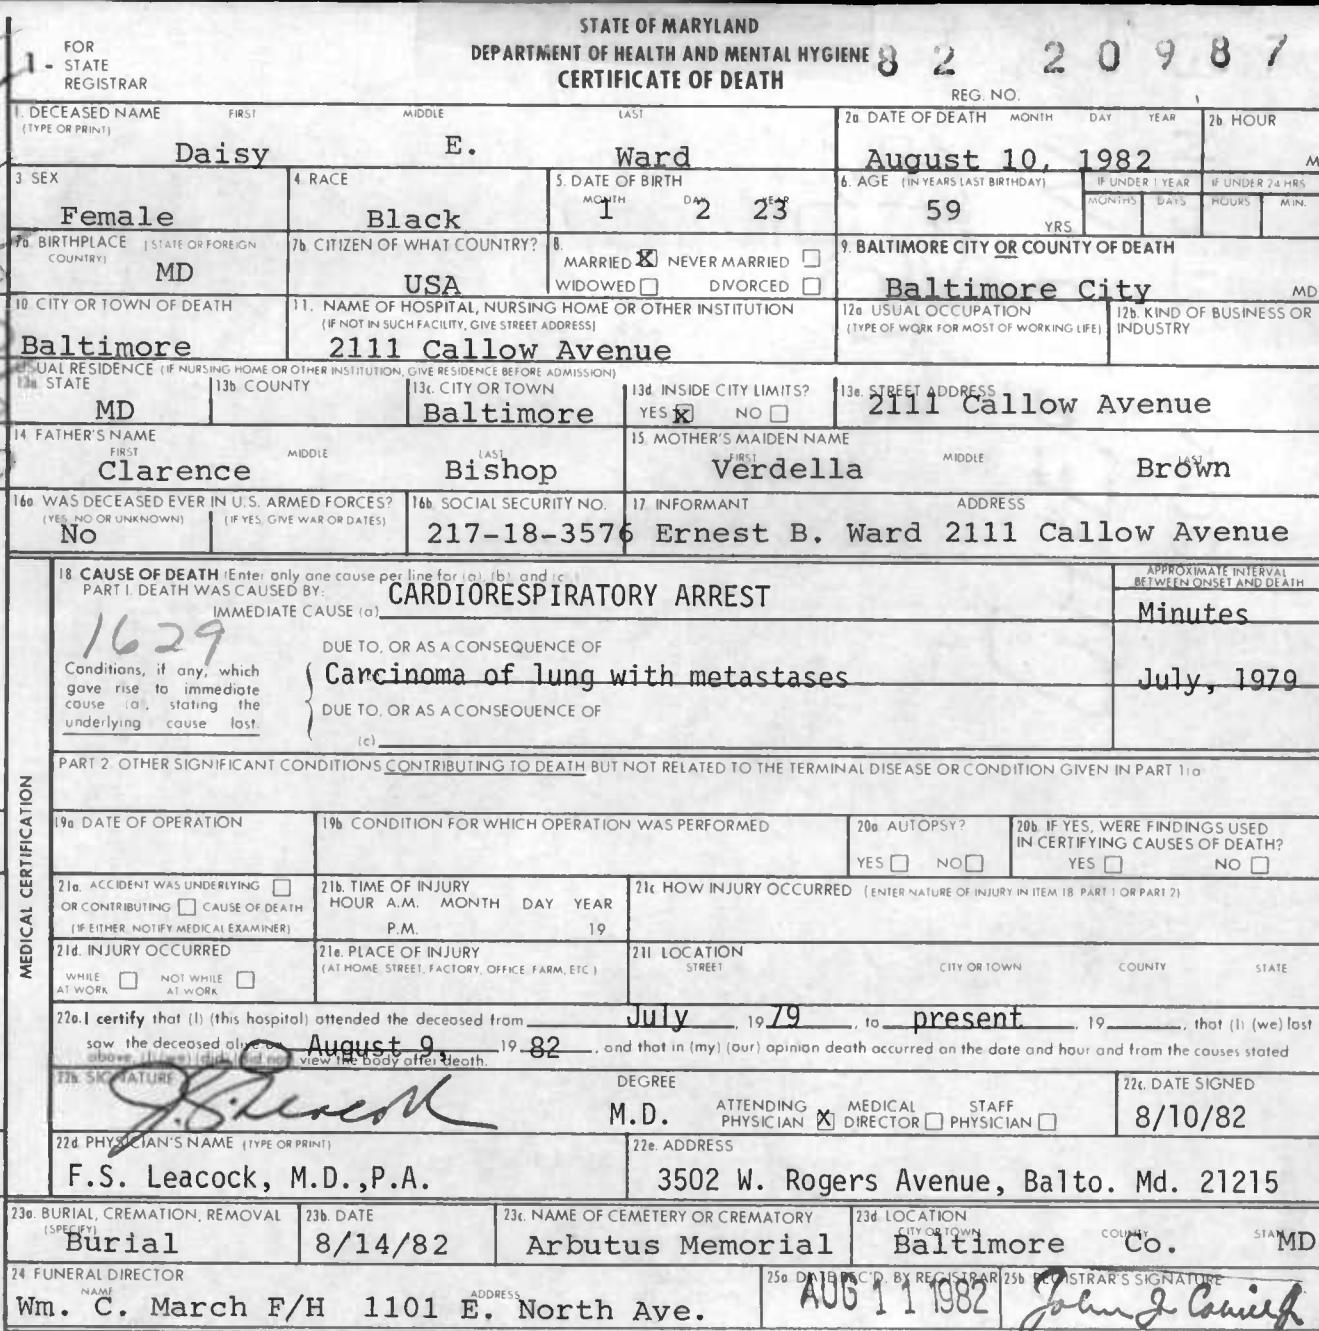 STATE OF MARYLAND
DEPARTMENT OF HEALTH AND MENTAL HYGIENE
CERTIFICATE OF DEATH
1 - FOR STATE REGISTRAR
82 20987
REG. NO.
1. DECEASED NAME (TYPE OR PRINT) FIRST MIDDLE LAST
Daisy E. Ward
2a DATE OF DEATH MONTH DAY YEAR
August 10, 1982
2b. HOUR
M
3 SEX
Female
4. RACE
Black
5. DATE OF BIRTH
MONTH DAY YEAR
1 2 23
6. AGE (IN YEARS LAST BIRTHDAY)
59 YRS
IF UNDER 1 YEAR
MONTHS DAYS
IF UNDER 24 HRS
HOURS MIN.
7a. BIRTHPLACE (STATE OR FOREIGN COUNTRY)
MD
7b. CITIZEN OF WHAT COUNTRY?
USA
8.
MARRIED X NEVER MARRIED
WIDOWED DIVORCED
9. BALTIMORE CITY OR COUNTY OF DEATH
Baltimore City MD
10 CITY OR TOWN OF DEATH
Baltimore
11. NAME OF HOSPITAL, NURSING HOME OR OTHER INSTITUTION
(IF NOT IN SUCH FACILITY, GIVE STREET ADDRESS)
2111 Callow Avenue
12a USUAL OCCUPATION
(TYPE OF WORK FOR MOST OF WORKING LIFE)
12b. KIND OF BUSINESS OR INDUSTRY
USUAL RESIDENCE (IF NURSING HOME OR OTHER INSTITUTION, GIVE RESIDENCE BEFORE ADMISSION)
13a STATE
MD
13b COUNTY
13c. CITY OR TOWN
Baltimore
13d INSIDE CITY LIMITS?
YES X NO
13e. STREET ADDRESS
2111 Callow Avenue
14 FATHER'S NAME
FIRST MIDDLE LAST
Clarence Bishop
15 MOTHER'S MAIDEN NAME
FIRST MIDDLE LAST
Verdella Brown
16a WAS DECEASED EVER IN U.S. ARMED FORCES?
(YES, NO OR UNKNOWN) (IF YES, GIVE WAR OR DATES)
No
16b SOCIAL SECURITY NO.
217-18-3576
17 INFORMANT ADDRESS
Ernest B. Ward 2111 Callow Avenue
MEDICAL CERTIFICATION
18 CAUSE OF DEATH (Enter only one cause per line for (a), (b), and (c).)
PART I. DEATH WAS CAUSED BY:
IMMEDIATE CAUSE (a) CARDIORESPIRATORY ARREST
APPROXIMATE INTERVAL BETWEEN ONSET AND DEATH
Minutes
1629
Conditions, if any, which gave rise to immediate cause (a), stating the underlying cause last.
DUE TO, OR AS A CONSEQUENCE OF
Carcinoma of lung with metastases
July, 1979
DUE TO, OR AS A CONSEQUENCE OF
(c)
PART 2 OTHER SIGNIFICANT CONDITIONS CONTRIBUTING TO DEATH BUT NOT RELATED TO THE TERMINAL DISEASE OR CONDITION GIVEN IN PART 1(a
19a DATE OF OPERATION
19b CONDITION FOR WHICH OPERATION WAS PERFORMED
20a AUTOPSY?
YES NO
20b. IF YES, WERE FINDINGS USED IN CERTIFYING CAUSES OF DEATH?
YES NO
21a. ACCIDENT WAS UNDERLYING
OR CONTRIBUTING CAUSE OF DEATH
(IF EITHER, NOTIFY MEDICAL EXAMINER)
21b. TIME OF INJURY
HOUR A.M. MONTH DAY YEAR
P.M. 19
21c HOW INJURY OCCURRED (ENTER NATURE OF INJURY IN ITEM 18 PART 1 OR PART 2)
21d. INJURY OCCURRED
WHILE AT WORK NOT WHILE AT WORK
21e. PLACE OF INJURY
(AT HOME, STREET, FACTORY, OFFICE, FARM, ETC.)
21f LOCATION
STREET CITY OR TOWN COUNTY STATE
22a. I certify that (I) (this hospital) attended the deceased from July, 19 79, to present, 19 , that (I) (we) last
saw the deceased alive on August 9, 19 82, and that in (my) (our) opinion death occurred on the date and hour and from the causes stated
above, (I) (we) (did) (did not) view the body after death.
22b. SIGNATURE
F.S. Leacock
DEGREE
M.D.
ATTENDING PHYSICIAN X MEDICAL DIRECTOR STAFF PHYSICIAN
22c. DATE SIGNED
8/10/82
22d PHYSICIAN'S NAME (TYPE OR PRINT)
F.S. Leacock, M.D.,P.A.
22e. ADDRESS
3502 W. Rogers Avenue, Balto. Md. 21215
23a. BURIAL, CREMATION, REMOVAL (SPECIFY)
Burial
23b. DATE
8/14/82
23c. NAME OF CEMETERY OR CREMATORY
Arbutus Memorial
23d LOCATION
CITY OR TOWN COUNTY STATE
Baltimore Co. MD
24 FUNERAL DIRECTOR
NAME ADDRESS
Wm. C. March F/H 1101 E. North Ave.
25a DATE REC'D. BY REGISTRAR
AUG 11 1982
25b REGISTRAR'S SIGNATURE
John J.